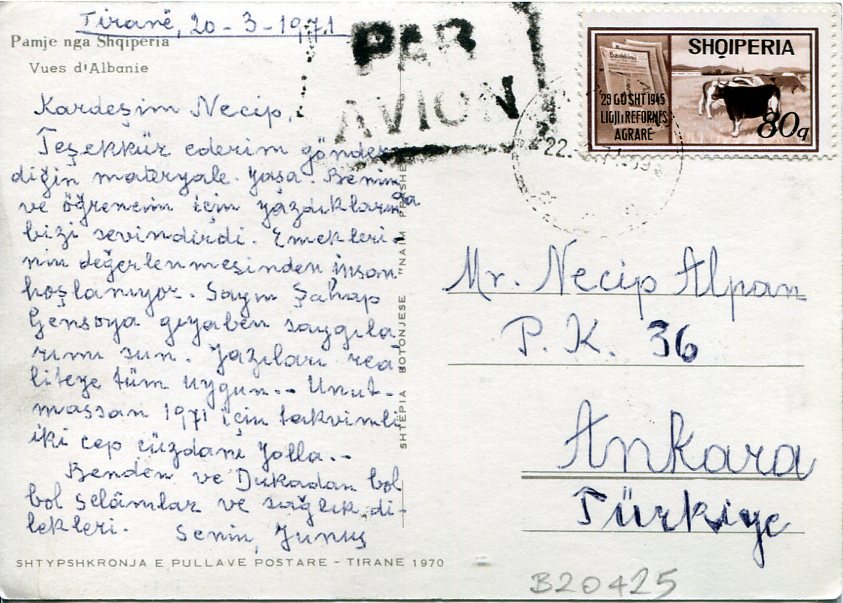 Tiranë, 20-3-1971
Pamje nga Shqipëria
Vues d'Albanie
PAR
AVION
SHQIPERIA
29 GUSHT 1945
LIGJI I REFORMËS
AGRARE
80q
22.
Kardeşim Necip,
Teşekkür ederim gönder-
diğin materyale. Yaşa. Benim
ve öğrencim için yazdıkların da
bizi sevindirdi. Emekleri-
nin değerlenmesinden insan
hoşlanıyor. Sayın Şahap
Gensoya gıyaben saygıla-
rımı sun. Yazıları rea-
liteye tüm uygun.. Unut-
massan 1971 için takvimli
iki cep cüzdanı yolla..
Benden ve Dukadan bol
bol selâmlar ve sağlık di-
lekleri.
Senin, Yunus
SHTEPIA BOTONJESE "NAIM
Mr. Necip Alpan
P. K. 36
Ankara
Türkiye
SHTYPSHKRONJA E PULLAVE POSTARE - TIRANE 1970
B20425